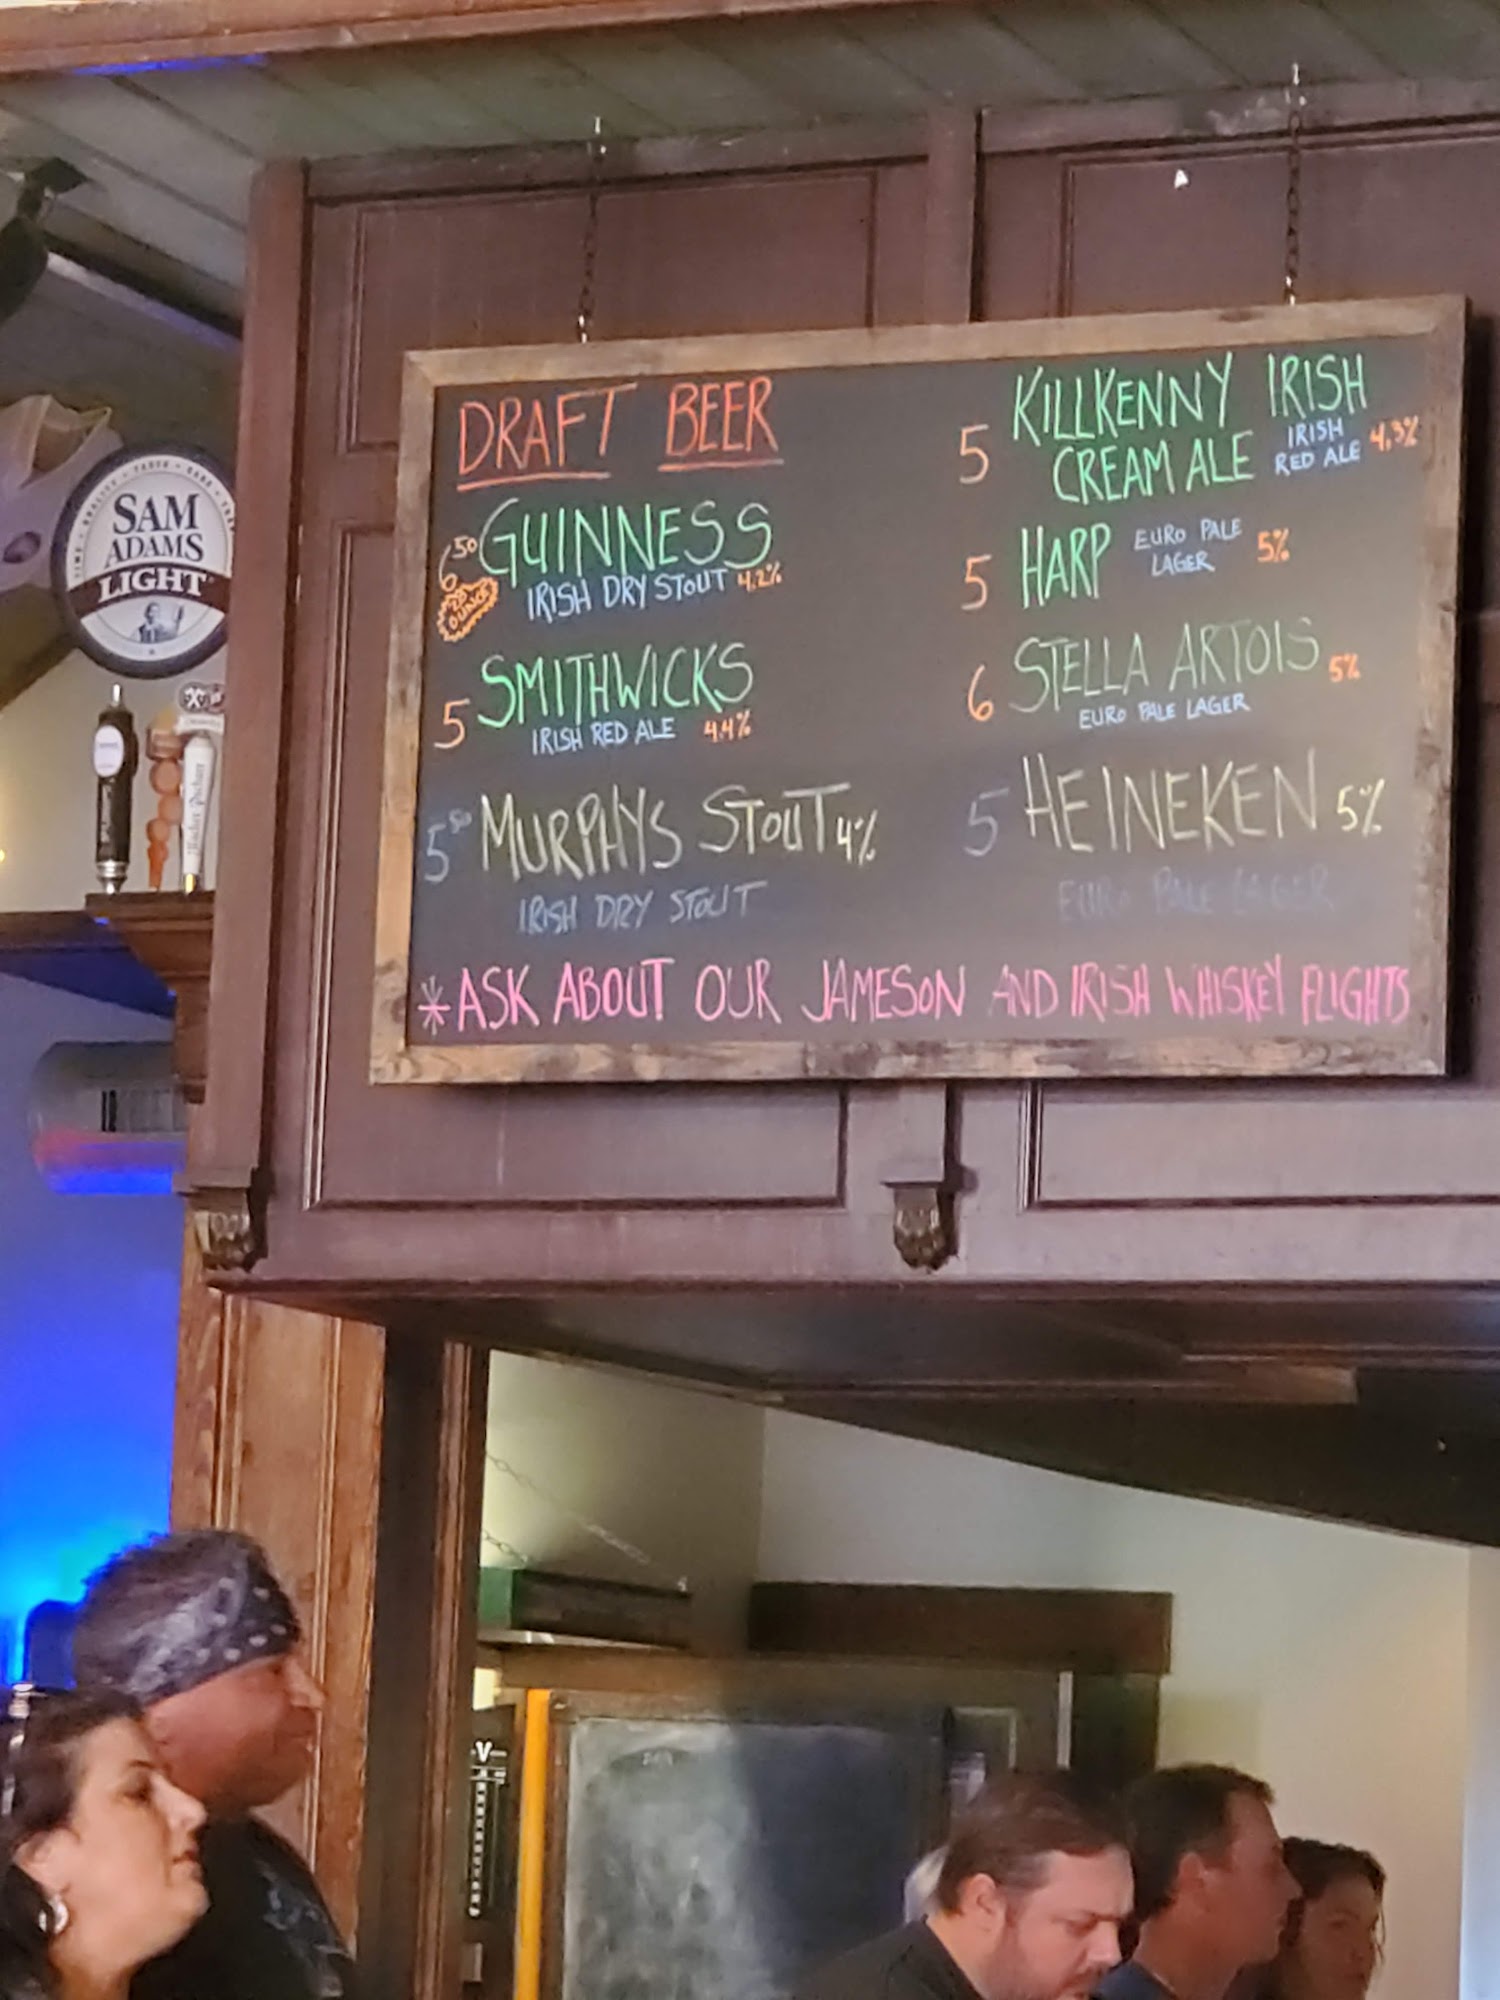 DRAFT BEER
6 50 GUINNESS
IRISH DRY STOUT 4.2%
OUNCE
5 SMITHWICKS
IRISH RED ALE 4.4%
5 50 MURPHYS STOUT 4%
IRISH DRY STOUT
5 KILLKENNY IRISH
CREAM ALE IRISH
RED ALE 4.3%
5 HARP EURO PALE
LAGER 5%
6 STELLA ARTOIS 5%
EURO PALE LAGER
5 HEINEKEN 5%
EURO PALE LAGER
*ASK ABOUT OUR JAMESON AND IRISH WHISKEY FLIGHTS
SAM
ADAMS
LIGHT